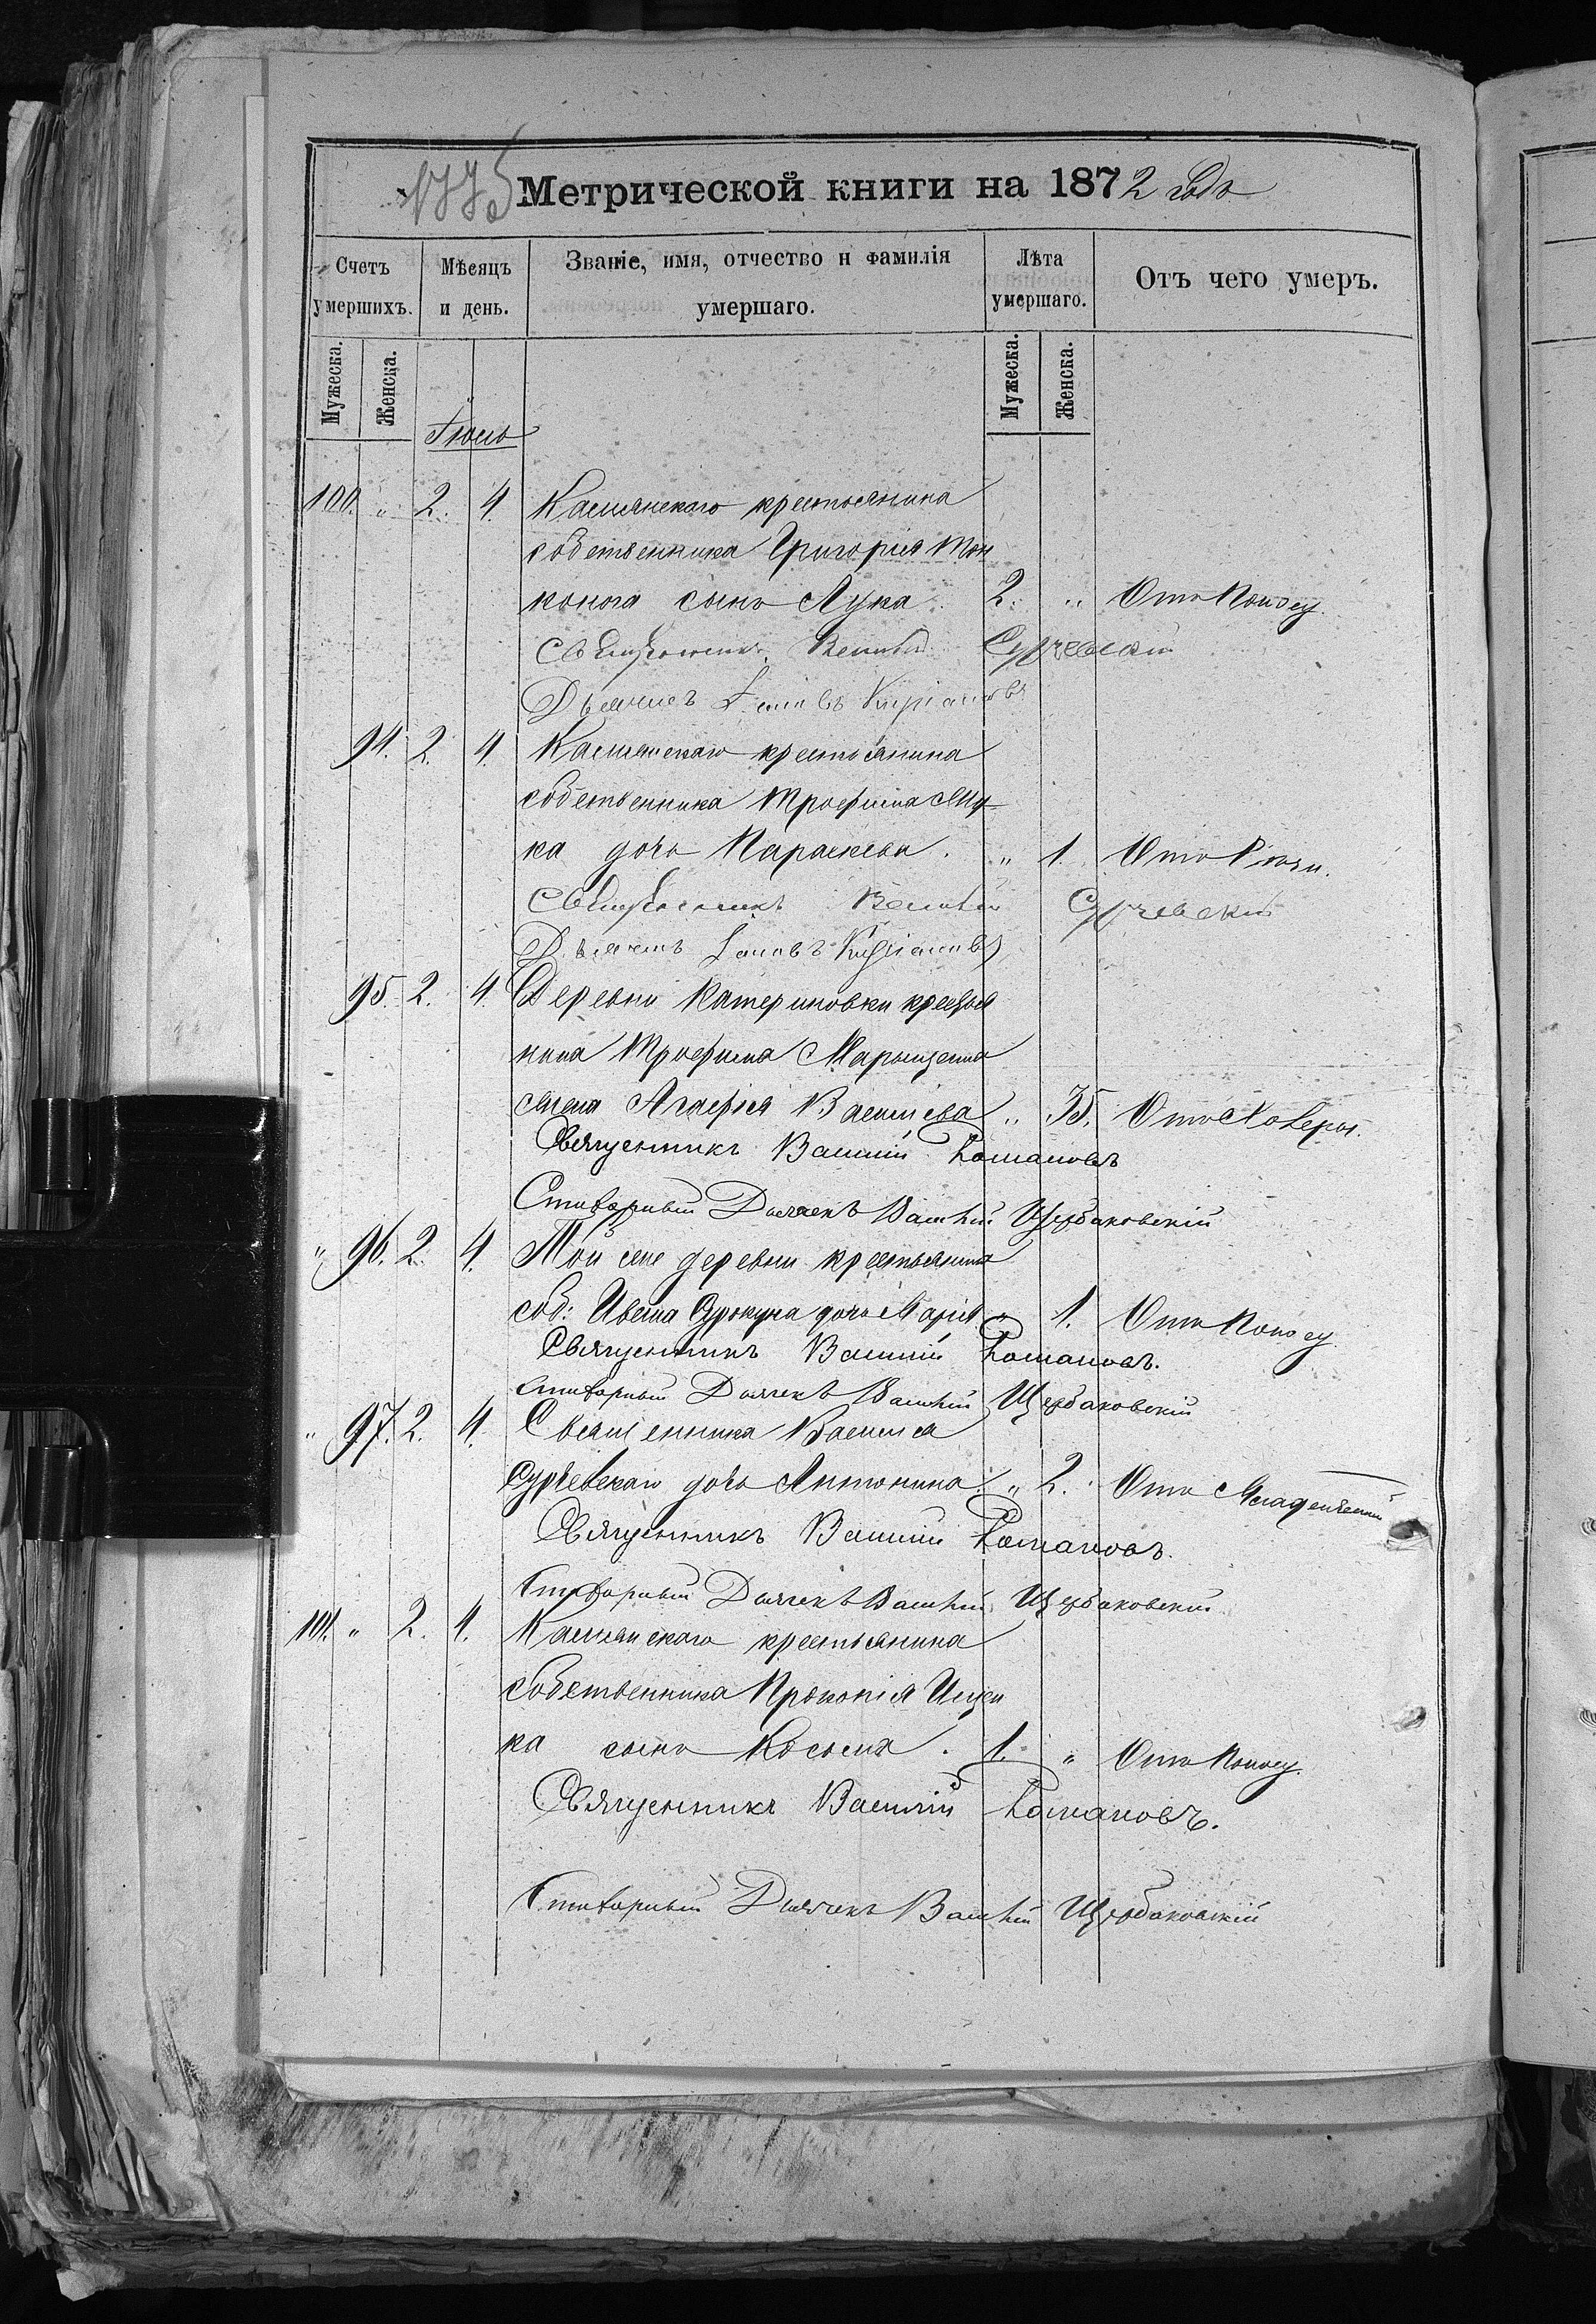 1775
Метрической книги на 1872 годъ
Счетъ умершихъ. Мѣсяцъ и день. Званіе, имя, отчество и фамилія умершаго. Лѣта умершаго. Отъ чего умеръ.
Мужеска. Женска. Мужеска. Женска.
Іюль
100. „ 2. 4. Каменскаго крестьянина
собственника Григорія Тон
конога сынъ Лука. 2. „ Отъ Коноеу
Священникъ Василій Сурчевскій
Дьячекъ Кипріановъ
94. 2. 4. Каменскаго крестьянина
собственника Трофима
ка дочь Параскева. „ 1. Отъ
Священникъ Василій Сурчевскій
Дьячекъ Кипріановъ
95. 2. 4. Деревни Катериновки крестья
нина Трофима Марынченка
жена Агафія Васильева „ 35. Отъ Холеры.
Священникъ Василій Романовъ
Дьячекъ Василій Щербаковскій
„ 96. 2. 4. Той же деревни крестьянина
соб: Ивана дочь Марія „ 1. Отъ Коноеу
Священникъ Василій Романовъ.
Дьячекъ Василій Щербаковскій
„ 97. 2. 4. Священника Василія
Сурчевскаго дочь Антонина. „ 2. Отъ Младенческой
Священникъ Василій Романовъ.
Дьячекъ Василій Щербаковскій
101. „ 2. 4. Каменскаго крестьянина
собственника Прокопія Ищен
ка сынъ Косьма. 1. „ Отъ Коноеу.
Священникъ Василій Романовъ.
Дьячекъ Василій Щербаковскій